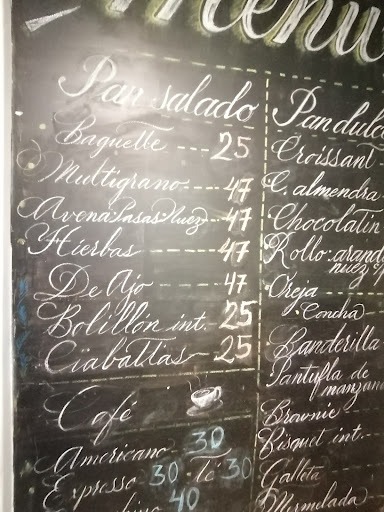 Menu
Pan salado
Baguette --- 25
Multigrano --- 47
Avena Pasas Nuez -- 47
Hierbas --- 47
De Ajo --- 47
Bolillón int. - 25
Ciabattas -- 25
Café
Americano - 30
Expresso 30 - Té 30
40
Pan dulc
Croissant
C. almendra
Chocolatin
Rollo: arand
nuez
Oreja
Concha
Banderilla
Pantufla de
manzan
Brownie
Bisquet int.
Galleta
Mermelada